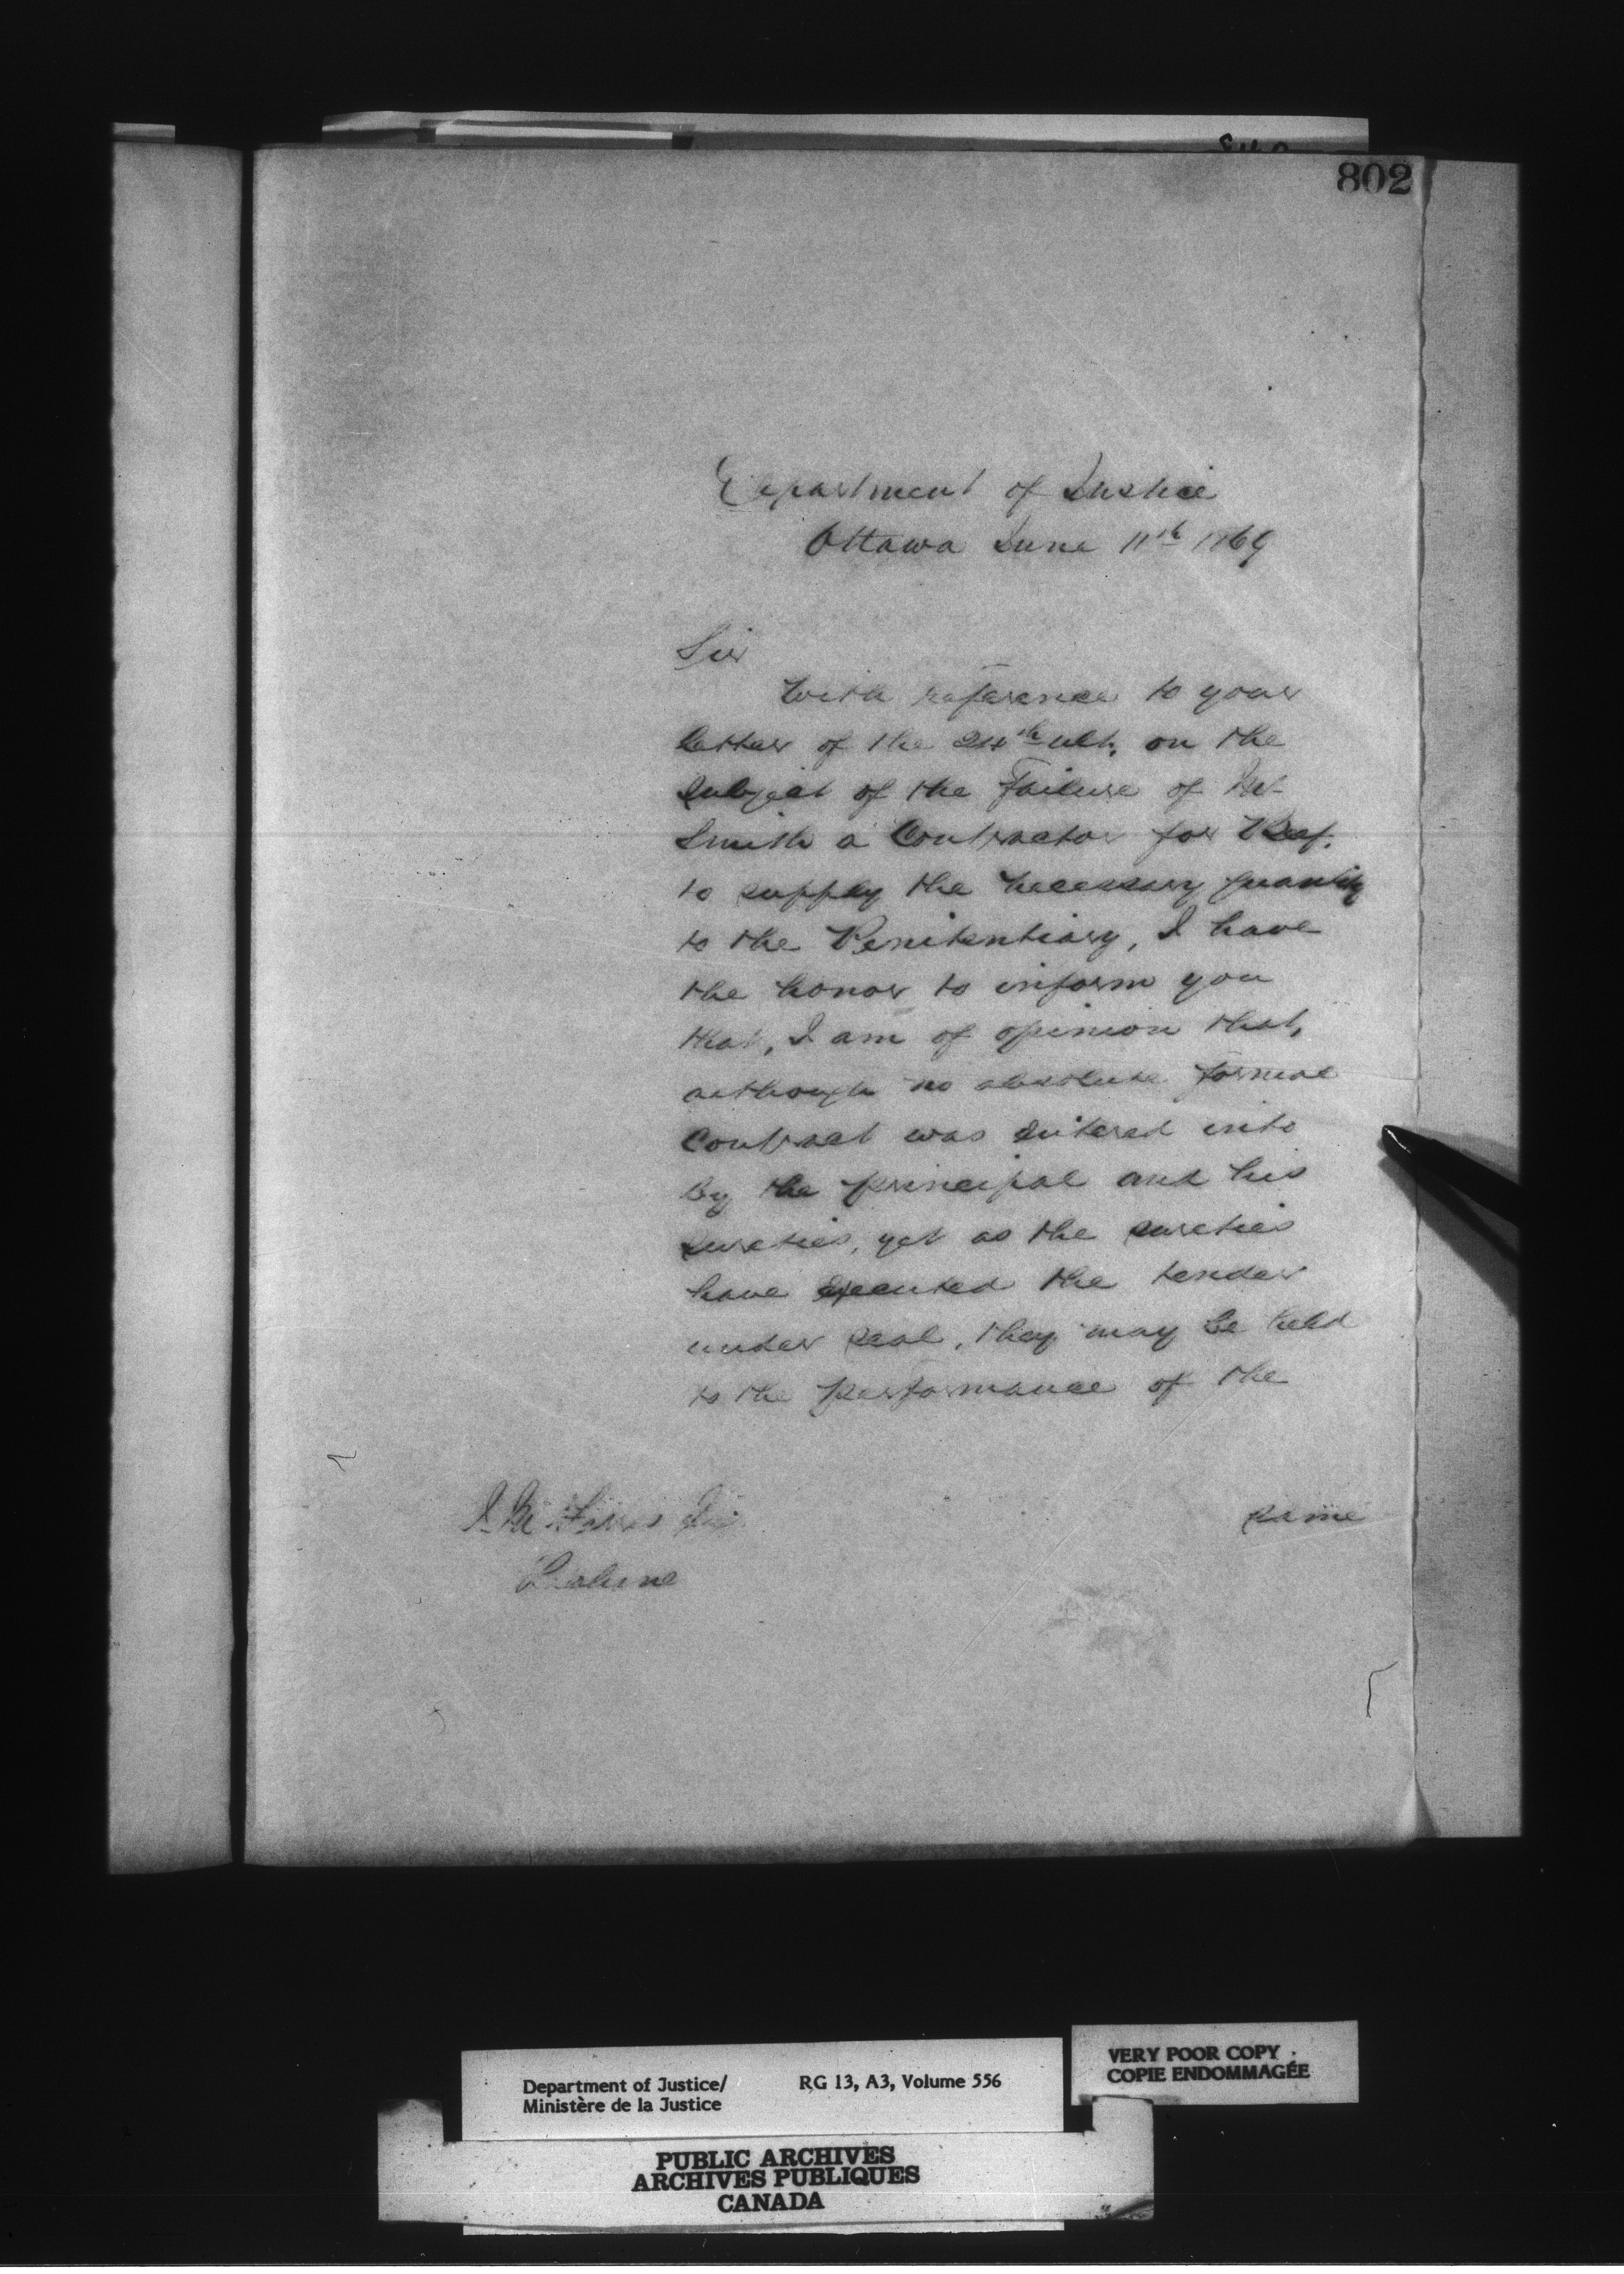 802
Department of Justice
Ottawa June 11th 1869
Sir
With reference to your
letter of the 24th ult. on the
subject of the Failure of Mr
Smith a Contractor for Beef.
to supply the necessary quantity
to the Penitentiary, I have
the honor to inform you
that, I am of opinion that,
although no absolute formal
Contract was entered into
by the principal and his
sureties, yet as the sureties
have executed the tender
under seal, they may be held
to the performance of the
same
Department of Justice/
Ministère de la Justice
RG 13, A3, Volume 556
VERY POOR COPY
COPIE ENDOMMAGÉE
PUBLIC ARCHIVES
ARCHIVES PUBLIQUES
CANADA